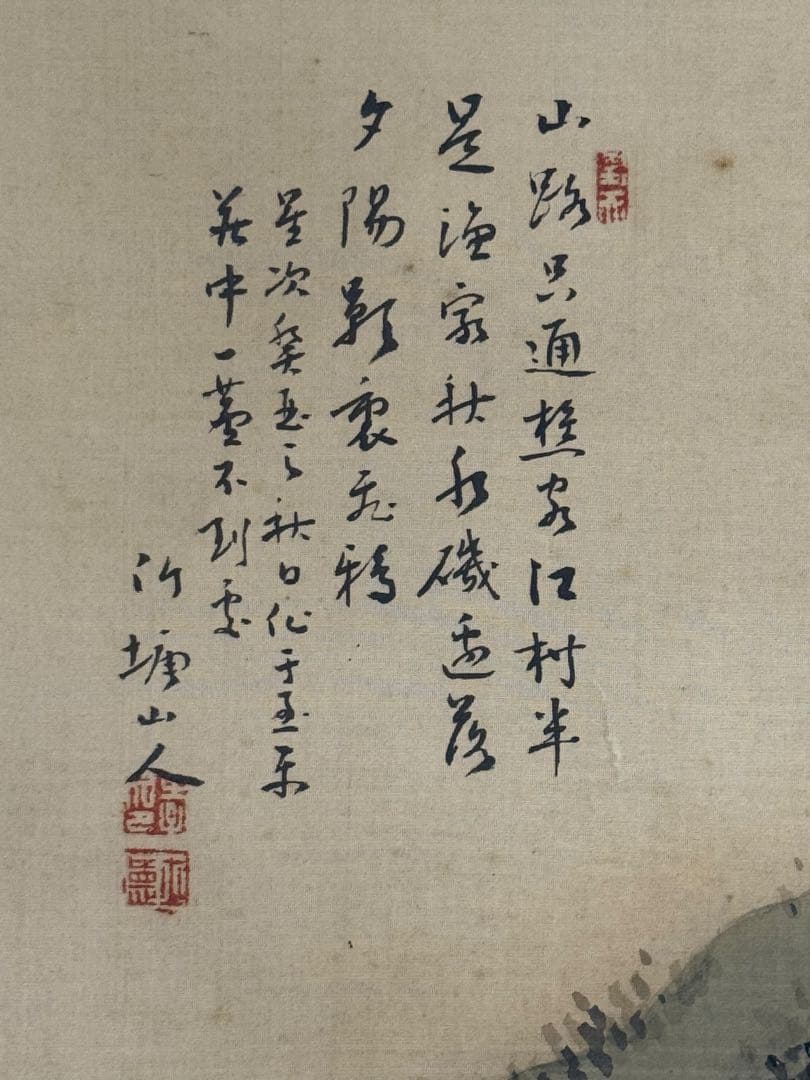 山路只通樵客江村半
是漁家秋水磯邊落
夕陽影裏飛鴉
星次癸亥之秋日作于至樂
莊中一塵不到處
竹塘山人